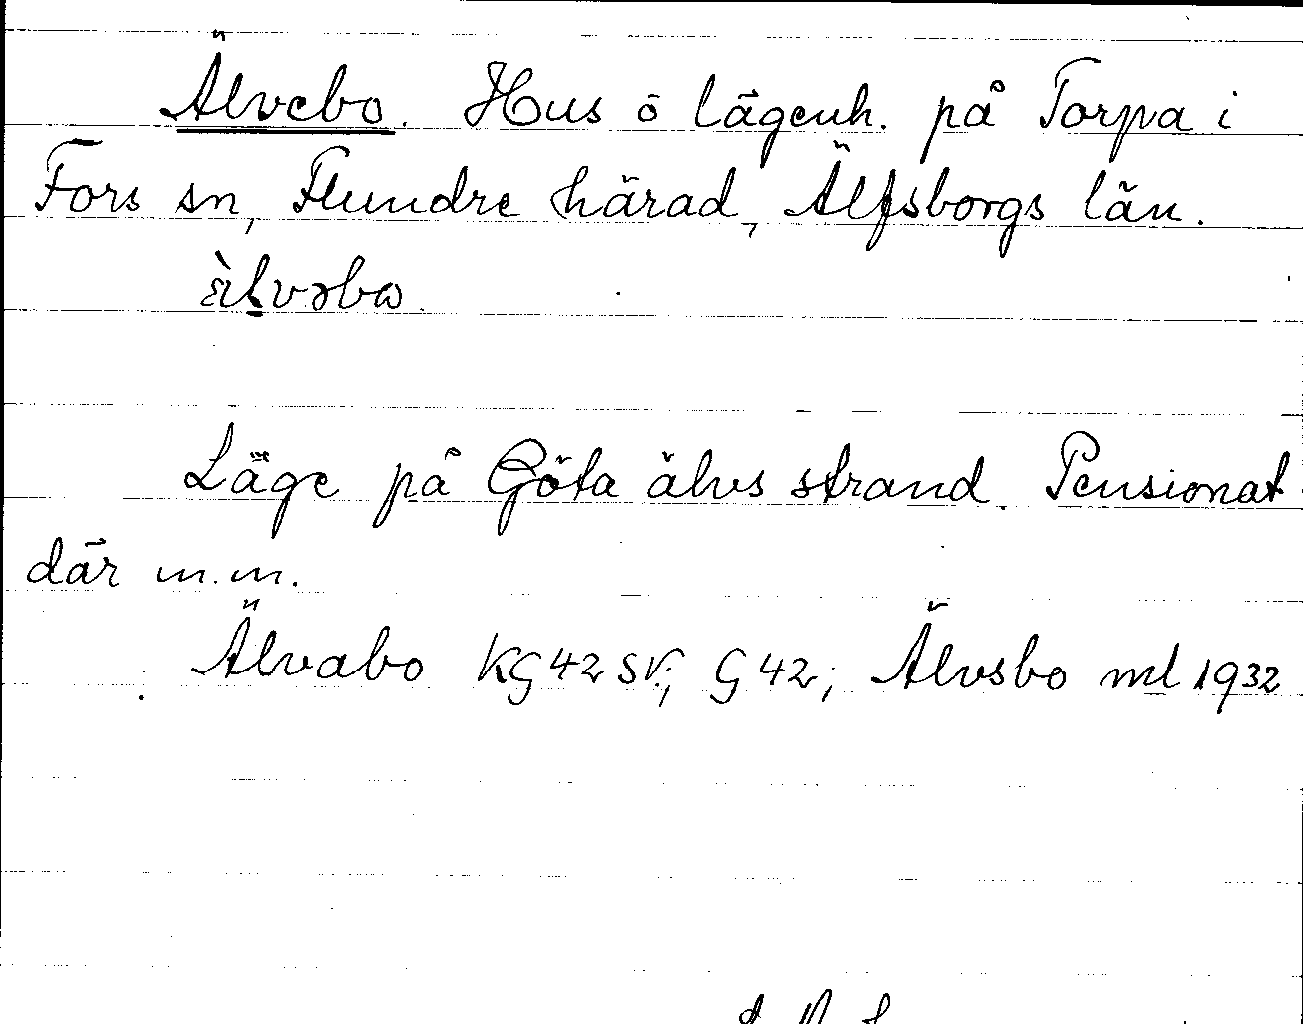 Älvebo. Hus ö lägenh. på Torpa i
Fors sn, Flundre härad, Älfsborgs län.
Läge på Göta älvs strand. Pensionat
där m.m.
Älvabo KG 42 SV; G 42; Älvsbo ml 1932